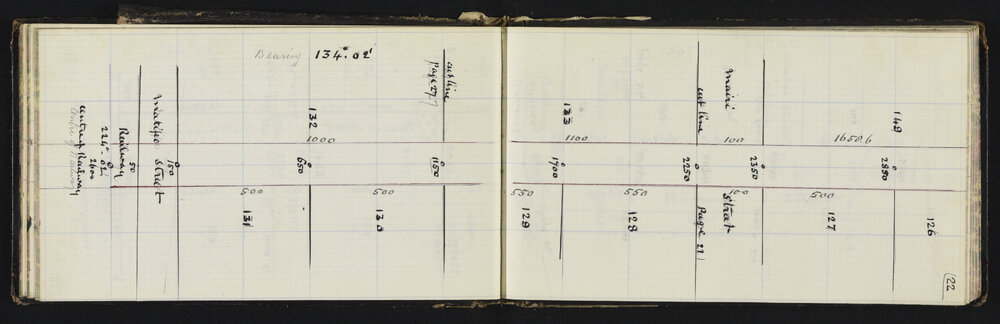 Bearing 134°.02'
cut line
page 27
132
1000
Matipo Street
Railway
50
0
224°.02'
2600
centre of Railway
150
650
1150
500
500
131
130
133
1100
cut line
100
1650.6
148
1700
2250
2350
2890
550
550
100
500
129
128
Street
Page 21
127
126
22